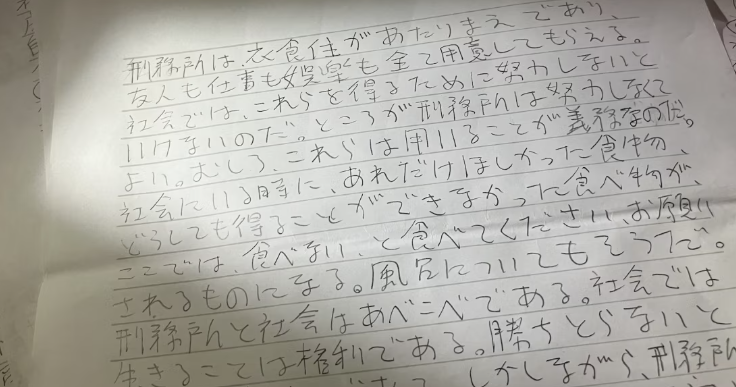 刑務所は、衣食住があたりまえであり、
友人も仕事も娯楽も全て用意してもらえる。
社会では、これらを得るために努力しないと
いけないのだ。ところが刑務所は努力しなくて
よい。むしろ、これらは用いることが義務なのだ。
社会にいる時に、あれだけほしかった食物、
どうしても得ることができなかった食べ物が、
ここでは、食べない、と食べてください、お願い
されるものになる。風呂についてもそうだ。
刑務所と社会はあべこべである。社会では
生きることは権利である。勝ちとらないと
しかしながら、刑務所